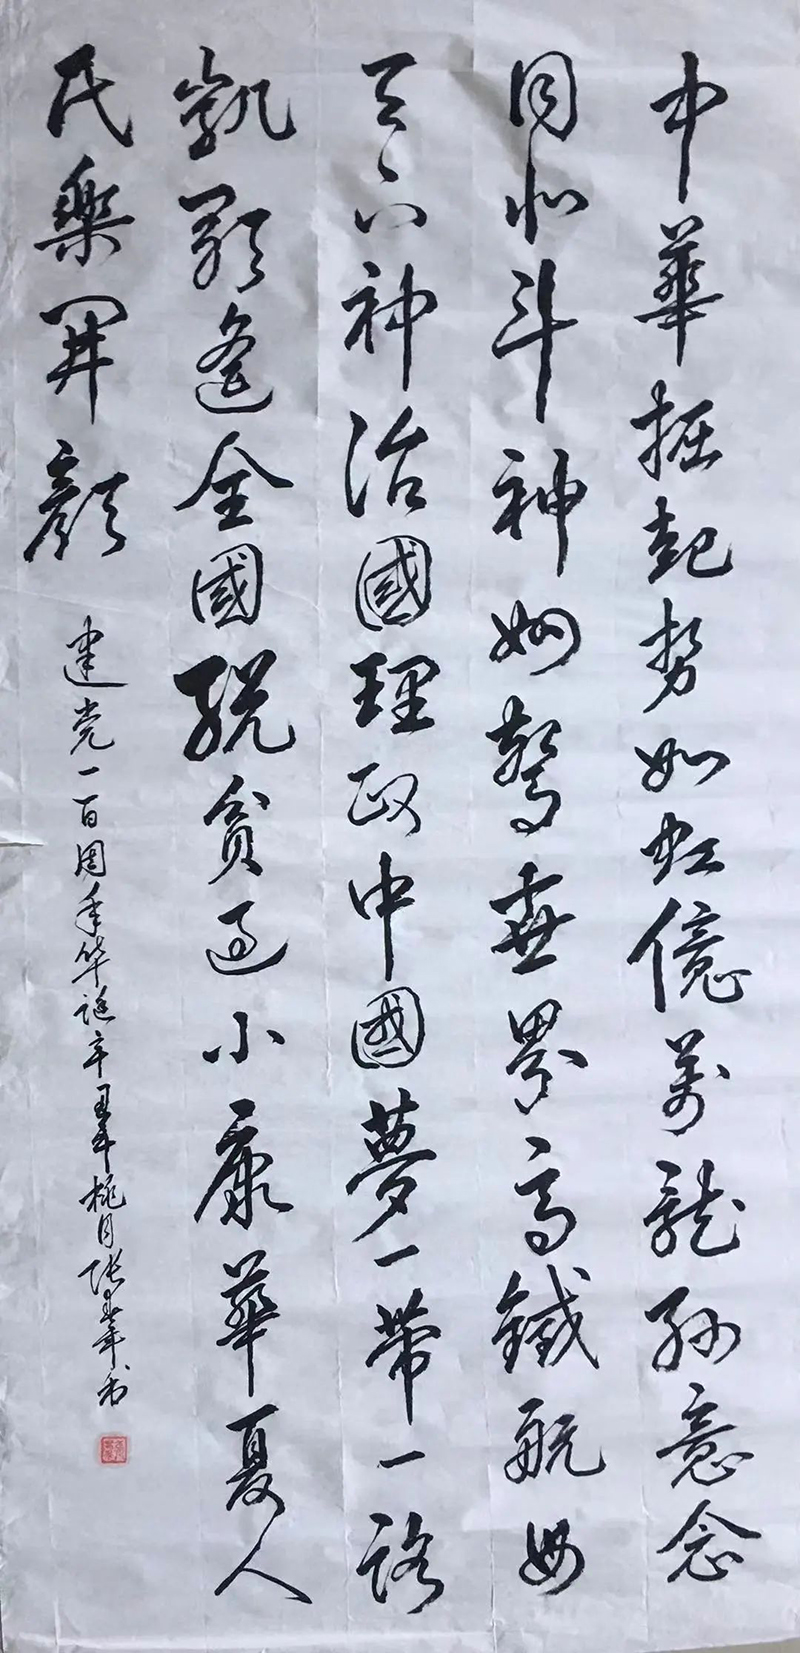 中華掘起勢如虹億萬龍孙意念
同北斗神州驚世界高鐵航母
天下神治國理政中國夢一帶一路
凱歌遙全國脱貧过小康華夏人
民樂開顔
建党一百周年华誕辛丑年桃月张書